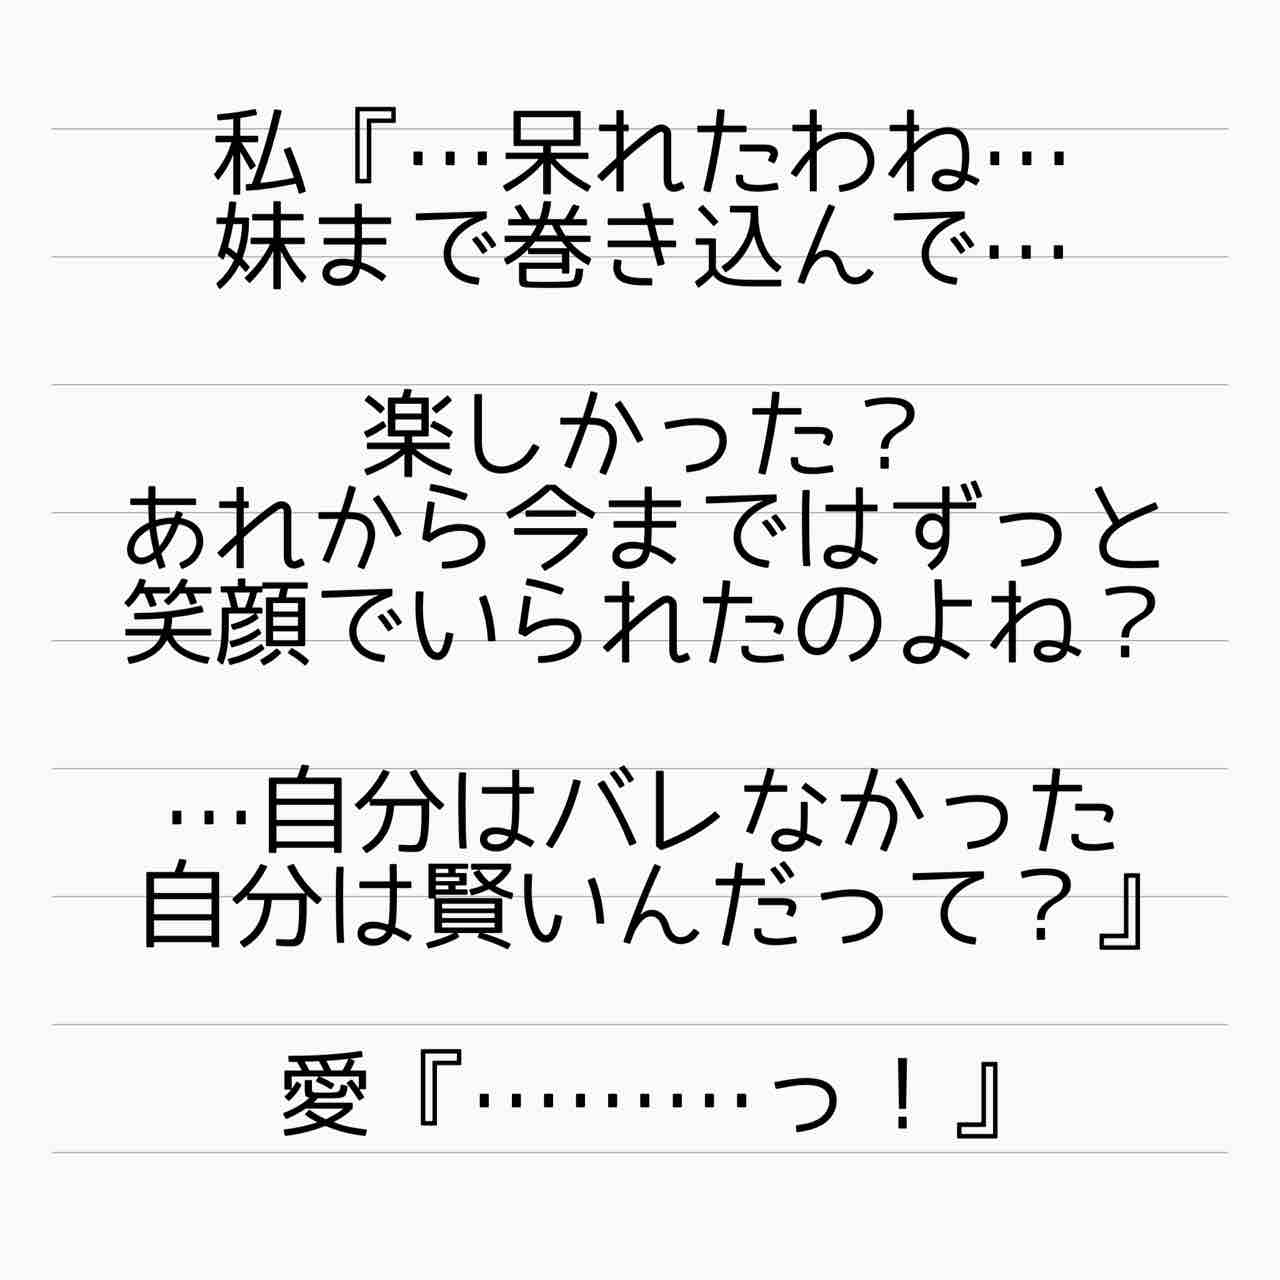 私『…呆れたわね…
妹まで巻き込んで…
楽しかった？
あれから今まではずっと
笑顔でいられたのよね？
…自分はバレなかった
自分は賢いんだって？』
愛『………っ！』